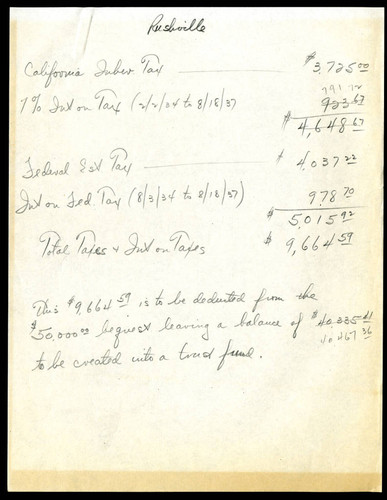 Rushville
California Inher. Tax $3,725.00
791 72
7% Int on Tax (2/2/34 to 8/18/37 923 67
$4,648 67
Federal Est Tax $4,037 22
Int on Fed Tax (8/3/34 to 8/18/37) 978 70
$5,015 92
Total Taxes & Int on Taxes $9,664 59
This $9,664 59 is to be deducted from the
$50,000 00 bequest leaving a balance of $40,335 41
40 467 36
to be created into a trust fund.